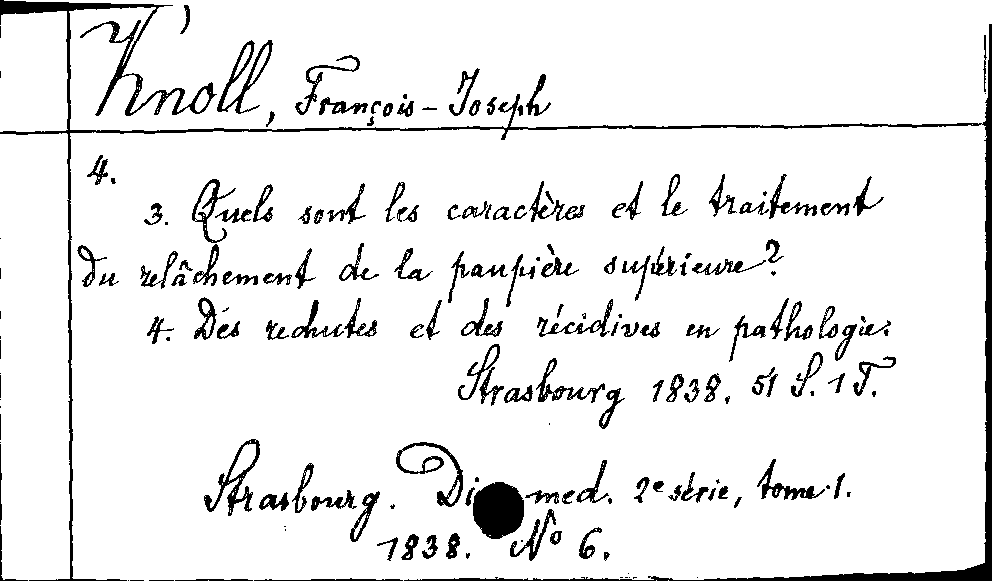 Knoll, François-Joseph
4.
3. Quels sont les caractères et le traitement
du relâchement de la paupière supérieure?
4. Des rechutes et des récidives en pathologie.
Strasbourg 1838. 51 S. 1 T.
Strasbourg. Di med. 2e série, tome 1.
1838. No 6.